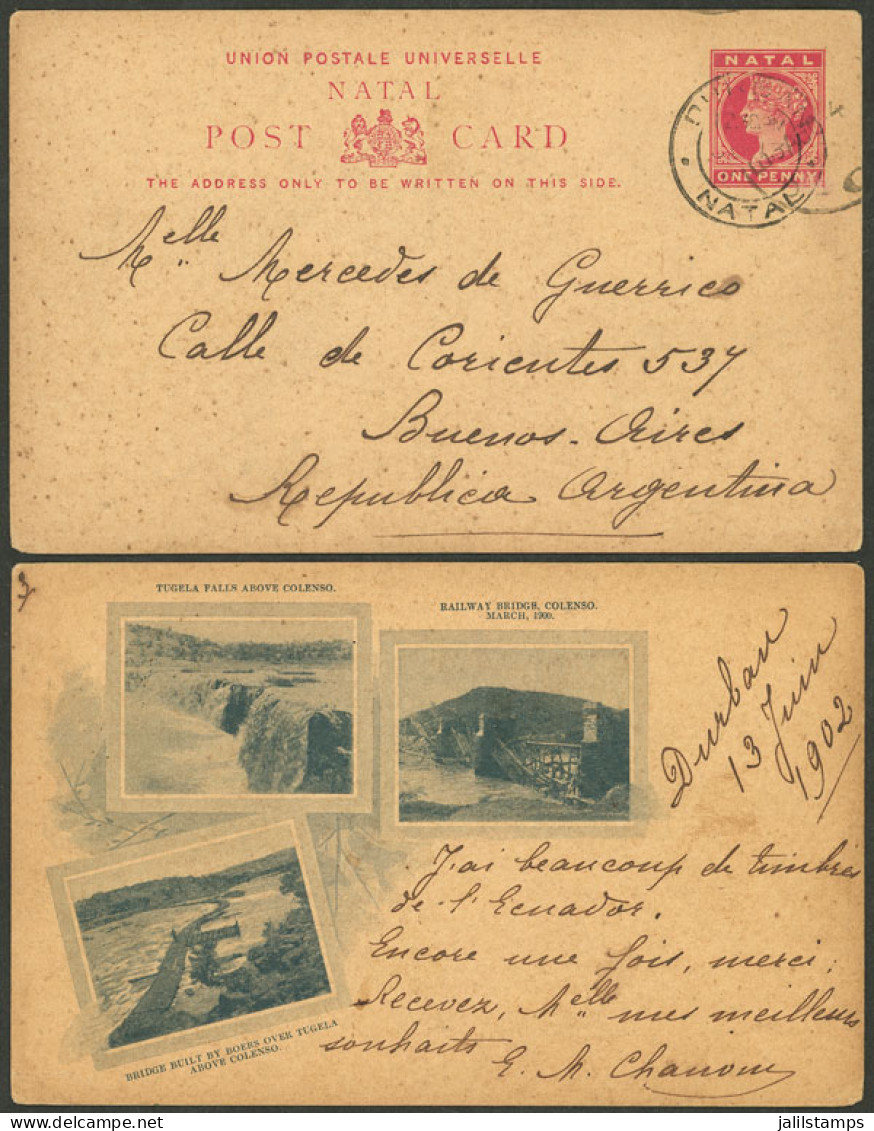 UNION POSTALE UNIVERSELLE
NATAL
POST CARD
THE ADDRESS ONLY TO BE WRITTEN ON THIS SIDE.
NATAL
ONE PENNY
NATAL
Melle Mercedes de Guerrico
Calle de Corientes 537
Buenos-Aires
Republica Argentina
TUGELA FALLS ABOVE COLENSO.
RAILWAY BRIDGE, COLENSO.
MARCH, 1900.
BRIDGE BUILT BY BOERS OVER TUGELA
ABOVE COLENSO.
Durban
13 Juin
1902
J'ai beaucoup de timbres
de l'Ecuador.
Encore une fois, merci;
Recevez, Melle mes meilleurs
souhaits
E. M.
jalilstamps